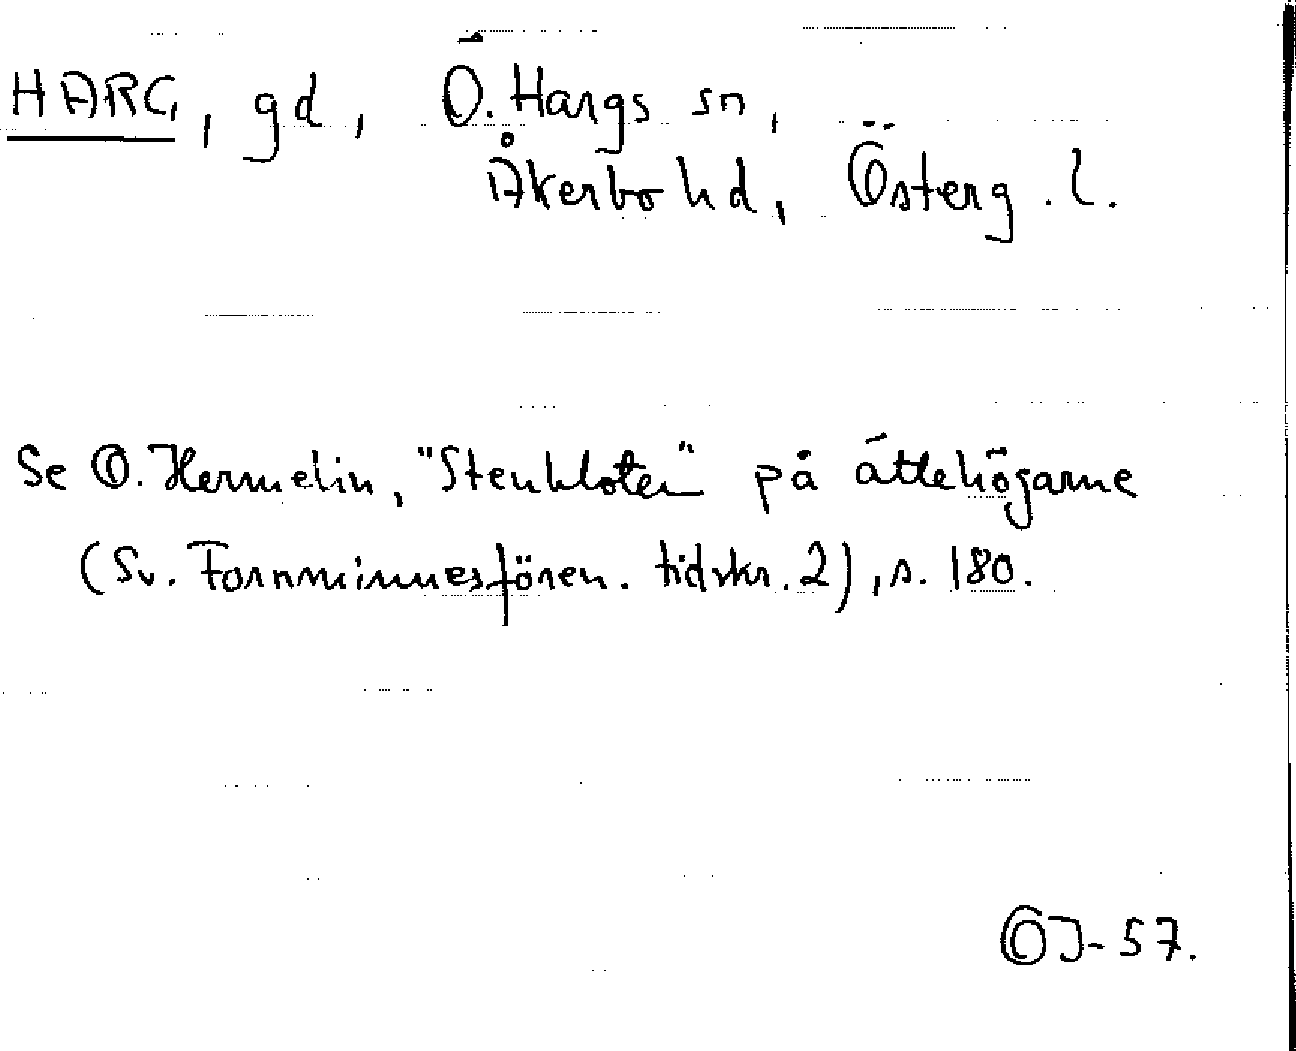 HARG, gd, Ö. Hargs sn,
Åkerbo hd, Österg. l.
Se O. Hermelin, "Stenkloten" på ättehögarne
(Sv. Fornminnesfören. tidskr. 2), s. 180.
OJ-57.